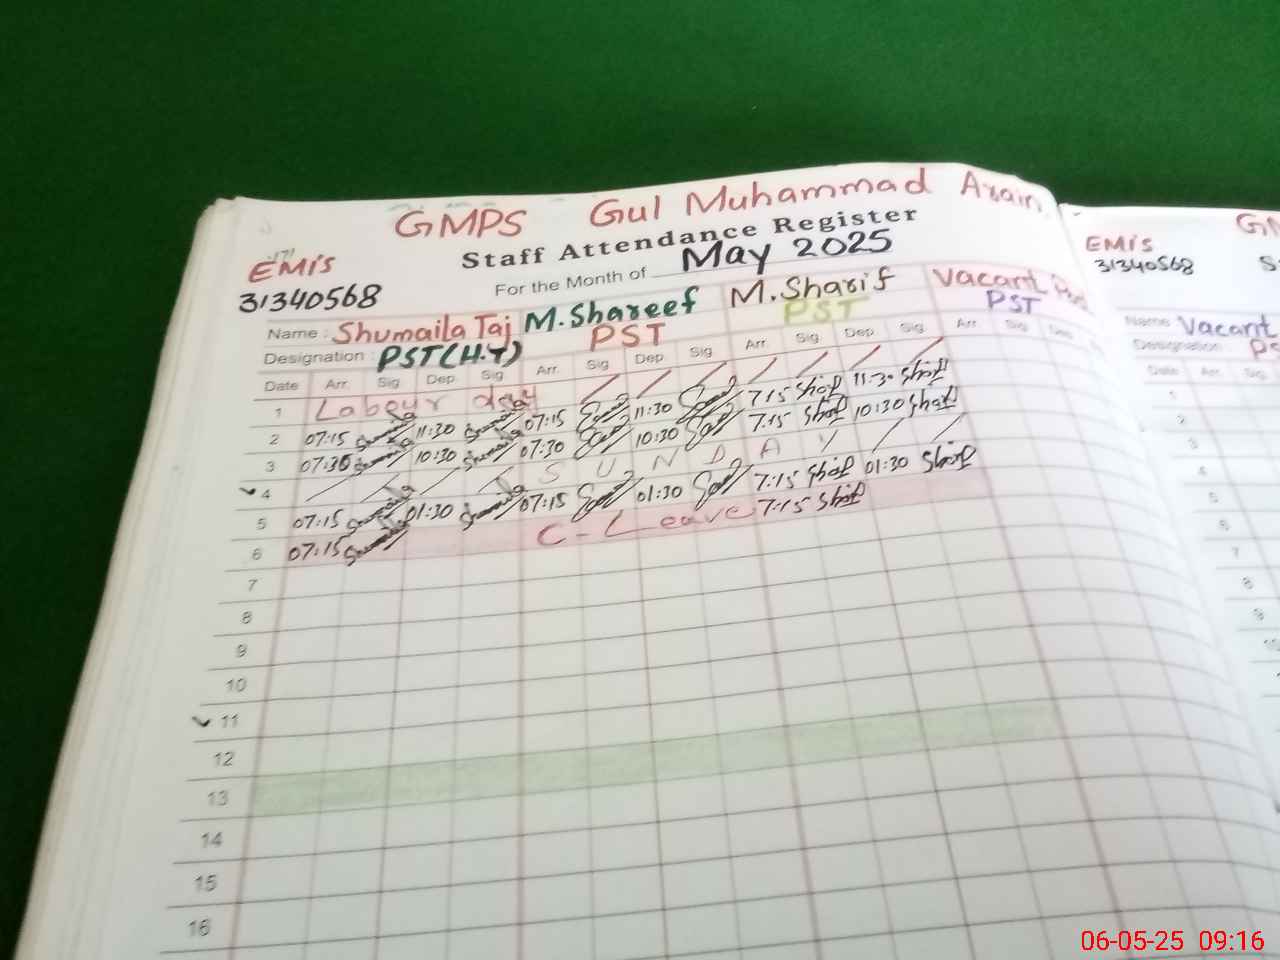 GMPS Gul Muhammad Arain
Staff Attendance Register
EMIS
31340568
For the Month of May 2025
Name: Shumaila Taj M. Shareef M. Sharif Vacant
Designation: PST (H.T) PST PST PST
Date Arr. Sig Dep. Sig Arr. Sig Dep Sig Arr. Sig Dep. Sig Arr. Sig
1 Labour day
2 07:15 Shumaila 11:30 Shumaila 07:15 11:30 7:15 Sharif 11:30 Sharif
3 07:30 Shumaila 10:30 Shumaila 07:30 10:30 7:15 Sharif 10:30 Sharif
4 SUNDAY
5 07:15 Shumaila 01:30 Shumaila 07:15 01:30 7:15 Sharif 01:30 Sharif
6 07:15 Shumaila C-Leave 7:15 Sharif
7
8
9
10
11
12
13
14
15
16
EMIS
31340568
Name Vacant
Designation
Date Arr. Sig
1
2
3
4
5
6
7
8
9
06-05-25 09:16